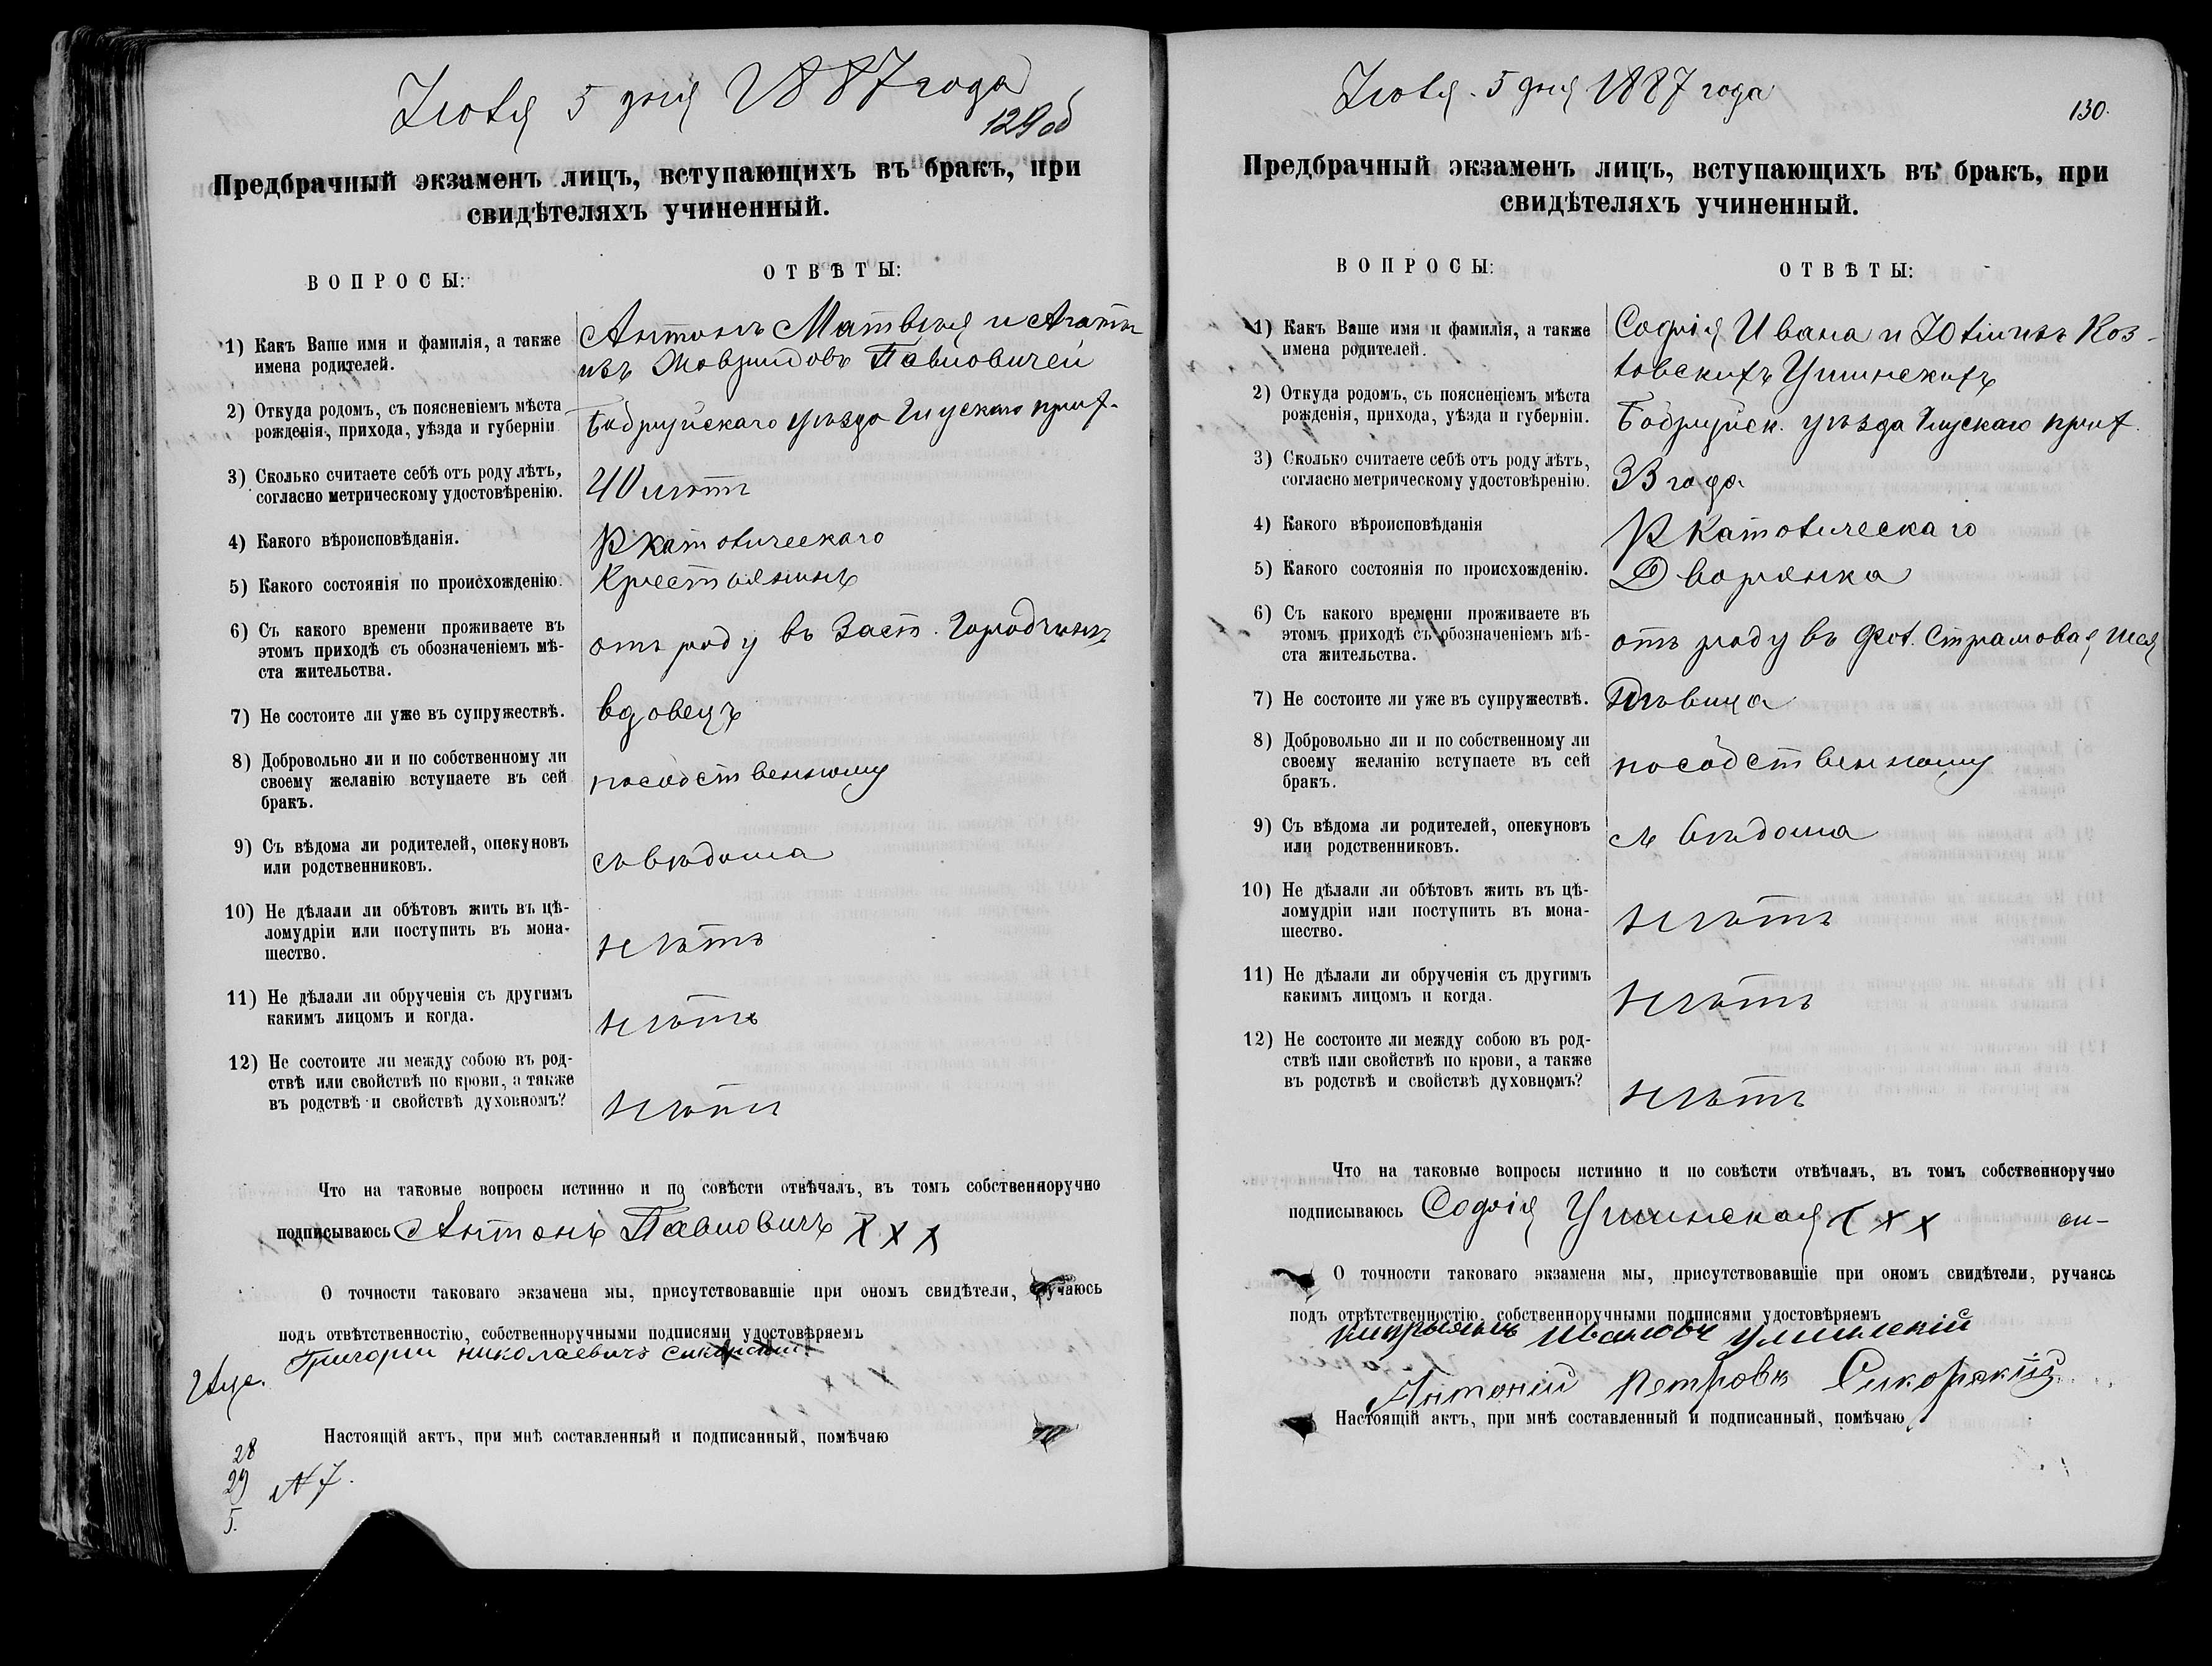 Іюля 5 дня 1887 года
129 об
Предбрачный экзаменъ лицъ, вступающихъ въ бракъ, при
свидѣтеляхъ учиненный.
ВОПРОСЫ:
ОТВѢТЫ:
1) Какъ Ваше имя и фамилія, а также
имена родителей.
Антонъ Матвѣя и Агаты
изъ Павловичей
2) Откуда родомъ, съ поясненіемъ мѣста
рожденія, прихода, уѣзда и губерніи
Бобруйскаго уѣзда Глускаго прих.
3) Сколько считаете себѣ отъ роду лѣтъ,
согласно метрическому удостовѣренію.
40 лѣтъ
4) Какого вѣроисповѣданія.
Р Католическаго
5) Какого состоянія по происхожденію.
Крестьянинъ
6) Съ какого времени проживаете въ
этомъ приходѣ съ обозначеніемъ мѣ-
ста жительства.
отъ роду въ Заст. Городчинъ
7) Не состоите ли уже въ супружествѣ.
вдовецъ
8) Добровольно ли и по собственному ли
своему желанію вступаете въ сей
бракъ.
пособственному
9) Съ вѣдома ли родителей, опекуновъ
или родственниковъ.
съ вѣдома
10) Не дѣлали ли обѣтовъ жить въ цѣ-
ломудріи или поступить въ мона-
шество.
нѣтъ
11) Не дѣлали ли обрученія съ другимъ
какимъ лицомъ и когда.
нѣтъ
12) Не состоите ли между собою въ род-
ствѣ или свойствѣ по крови, а также
въ родствѣ и свойствѣ духовномъ?
нѣтъ
Что на таковые вопросы истинно и по совѣсти отвѣчалъ, въ томъ собственноручно
подписываюсь Антонъ Павловичъ х х х
О точности таковаго экзамена мы, присутствовавшіе при ономъ свидѣтели, ручаюсь
подъ отвѣтственностію, собственноручными подписями удостовѣряемъ
Григории николаевичъ
Настоящій актъ, при мнѣ составленный и подписанный, помѣчаю
28
29
5.
N 7.
Іюля 5 дня 1887 года
130.
Предбрачный экзаменъ лицъ, вступающихъ въ бракъ, при
свидѣтеляхъ учиненный.
ВОПРОСЫ:
ОТВѢТЫ:
1) Какъ Ваше имя и фамилія, а также
имена родителей.
Софія Ивана и Юліи изъ Коз-
ловскихъ Ушинскихъ
2) Откуда родомъ, съ поясненіемъ мѣста
рожденія, прихода, уѣзда и губерніи.
Бобруйск. уѣзда Глускаго прих.
3) Сколько считаете себѣ отъ роду лѣтъ,
согласно метрическому удостовѣренію.
33 года
4) Какого вѣроисповѣданія
Р Католическаго
5) Какого состоянія по происхожденію.
Дворянка
6) Съ какого времени проживаете въ
этомъ приходѣ съ обозначеніемъ мѣ-
ста жительства.
отъ роду въ Фол.
7) Не состоите ли уже въ супружествѣ.
Дѣвица
8) Добровольно ли и по собственному ли
своему желанію вступаете въ сей
бракъ.
пособственному
9) Съ вѣдома ли родителей, опекуновъ
или родственниковъ.
съ вѣдома
10) Не дѣлали ли обѣтовъ жить въ цѣ-
ломудріи или поступить въ мона-
шество.
нѣтъ
11) Не дѣлали ли обрученія съ другимъ
какимъ лицомъ и когда.
нѣтъ
12) Не состоите ли между собою въ род-
ствѣ или свойствѣ по крови, а также
въ родствѣ и свойствѣ духовномъ?
нѣтъ
Что на таковые вопросы истинно и по совѣсти отвѣчалъ, въ томъ собственноручно
подписываюсь Софія Ушинская х х х
О точности таковаго экзамена мы, присутствовавшіе при ономъ свидѣтели, ручаясь
подъ отвѣтственностію, собственноручными подписями удостовѣряемъ
ивановъ ушинскій
Антоній Петровъ Сикорскій
Настоящій актъ, при мнѣ составленный и подписанный, помѣчаю